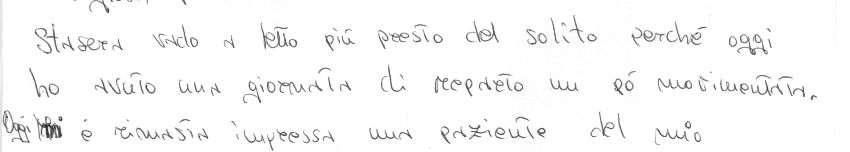 Stasera vado a letto più presto del solito perché oggi
ho avuto una giornata di reparto un pó movimentata.
Oggi mi é rimasta impressa una paziente del mio